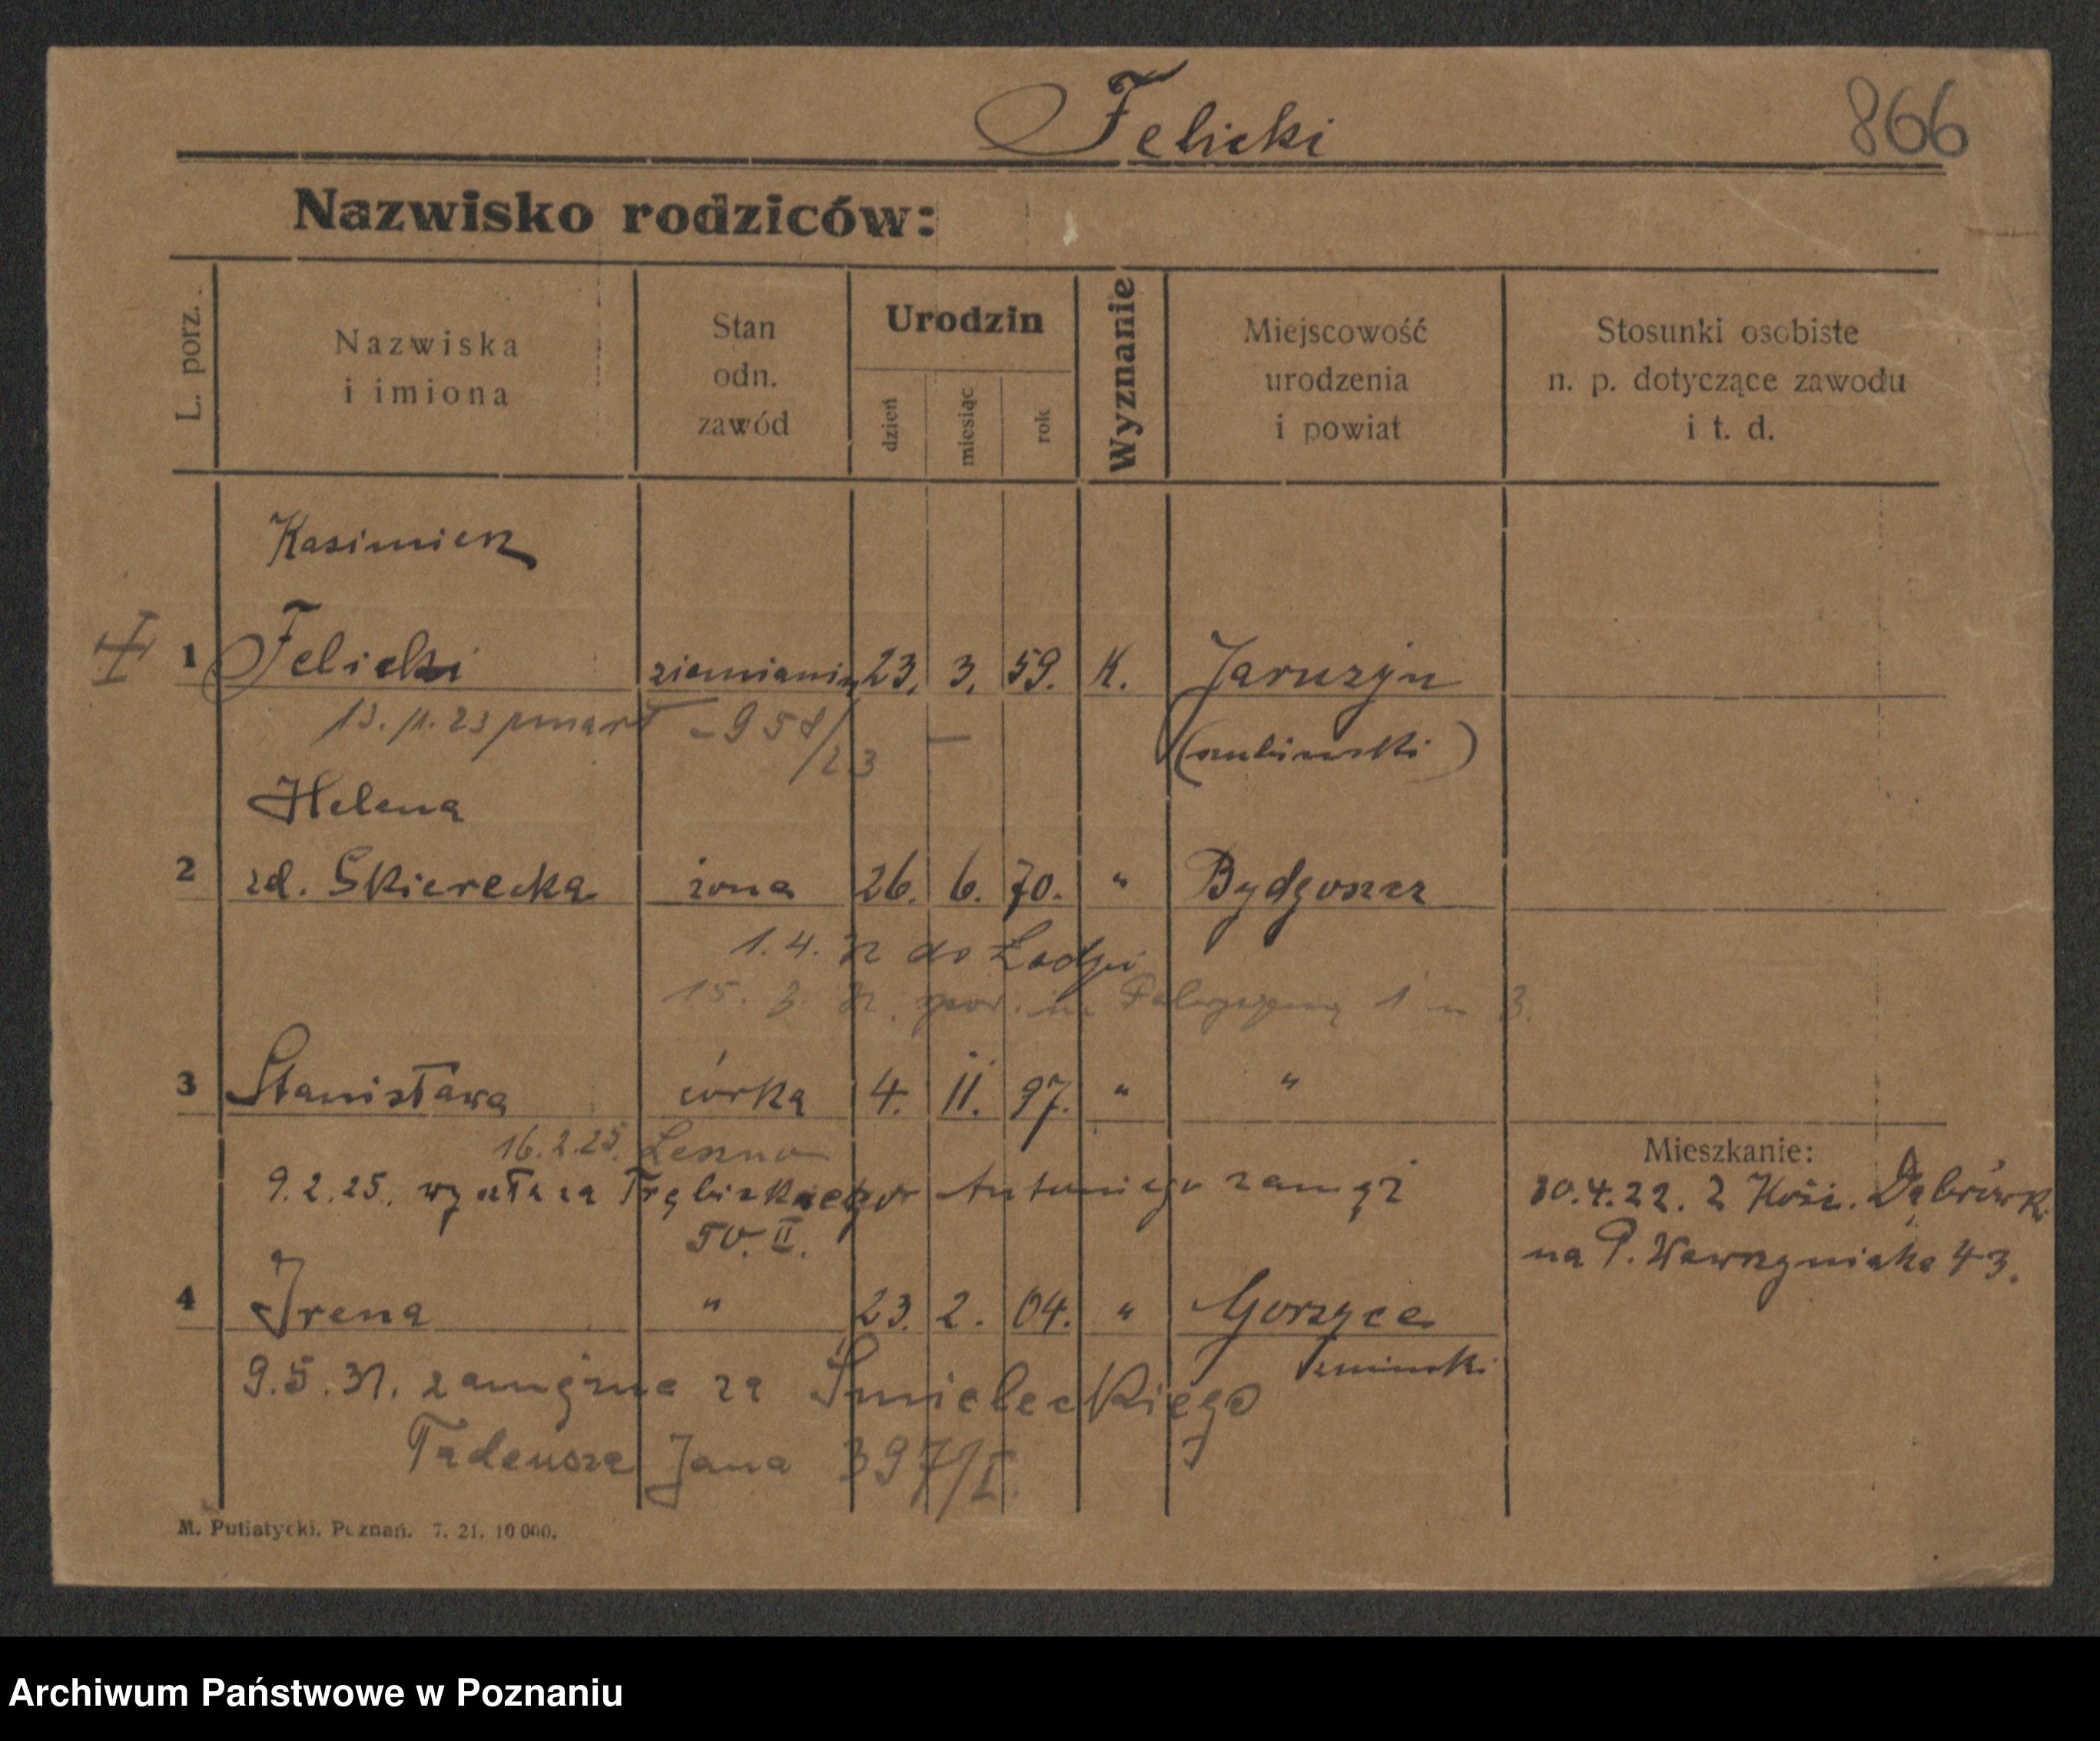 Felicki
866
Nazwisko rodziców:
L. porz.
Nazwiska
i imiona
Stan
odn.
zawód
Urodzin
dzień
miesiąc
rok
Wyznanie
Miejscowość
urodzenia
i powiat
Stosunki osobiste
n. p. dotyczące zawodu
i t. d.
Kasimierz
1 Felicki ziemianin 23. 3. 59. K. Jaruzyn
13. 11. 23 zmarł - 958/23 —
Helena
2 zd. Skierecka żona 26. 6. 70. " Bydgoszcz
1.4. 31 do Łodzi
15. 3. 31.
3 Stanisława córka 4. 11. 97. " "
16.2.25. Leszno
9.2.25. wyszła za Antoniego zamąż
50. II.
Mieszkanie:
30.4.22. z Kośc. Dąbrówki
na P. Wawrzyniaka 43.
4 Irena " 23. 2. 04. " Gorzyce
żniński
9.5.31. zamężna za Śmieleckiego
Tadeusza Jana 397/I.
M. Putiatycki. Poznań. 7. 21. 10 000.
Archiwum Państwowe w Poznaniu